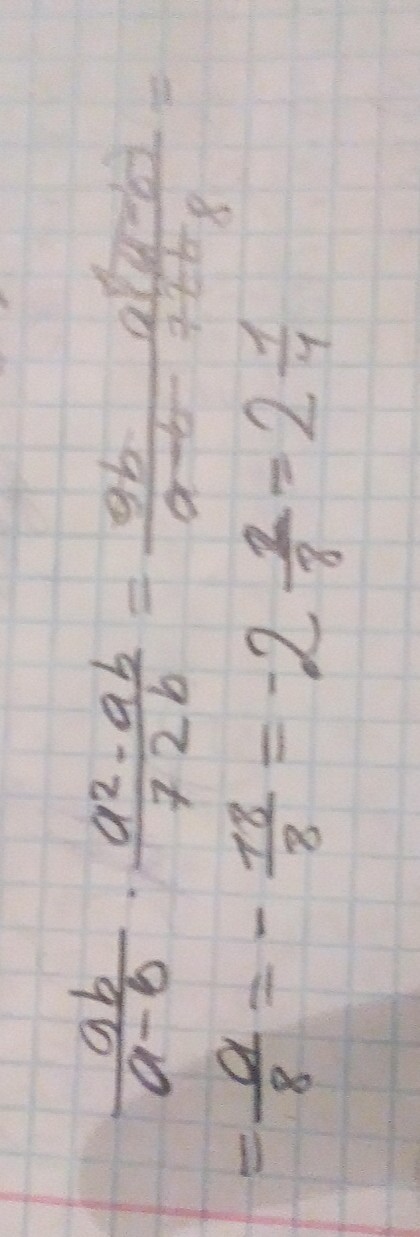 9b/(a-b) · (a²-ab)/72b = (9b a(a-b))/(a-b 72b) 8 =
= a/8 = - 18/8 = -2 2/8 = 2 1/4